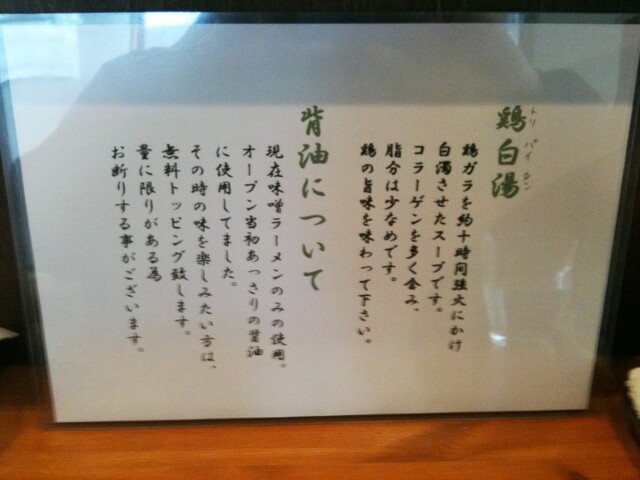 鶏白湯
トリ パイ タン
鶏ガラを約十時間強火にかけ
白濁させたスープです。
コラーゲンを多く含み、
脂分は少なめです。
鶏の旨味を味わって下さい。
背油について
現在味噌ラーメンのみの使用。
オープン当初あっさりの醤油
に使用してました。
その時の味を楽しみたい方は、
無料トッピング致します。
量に限りがある為
お断りする事がございます。